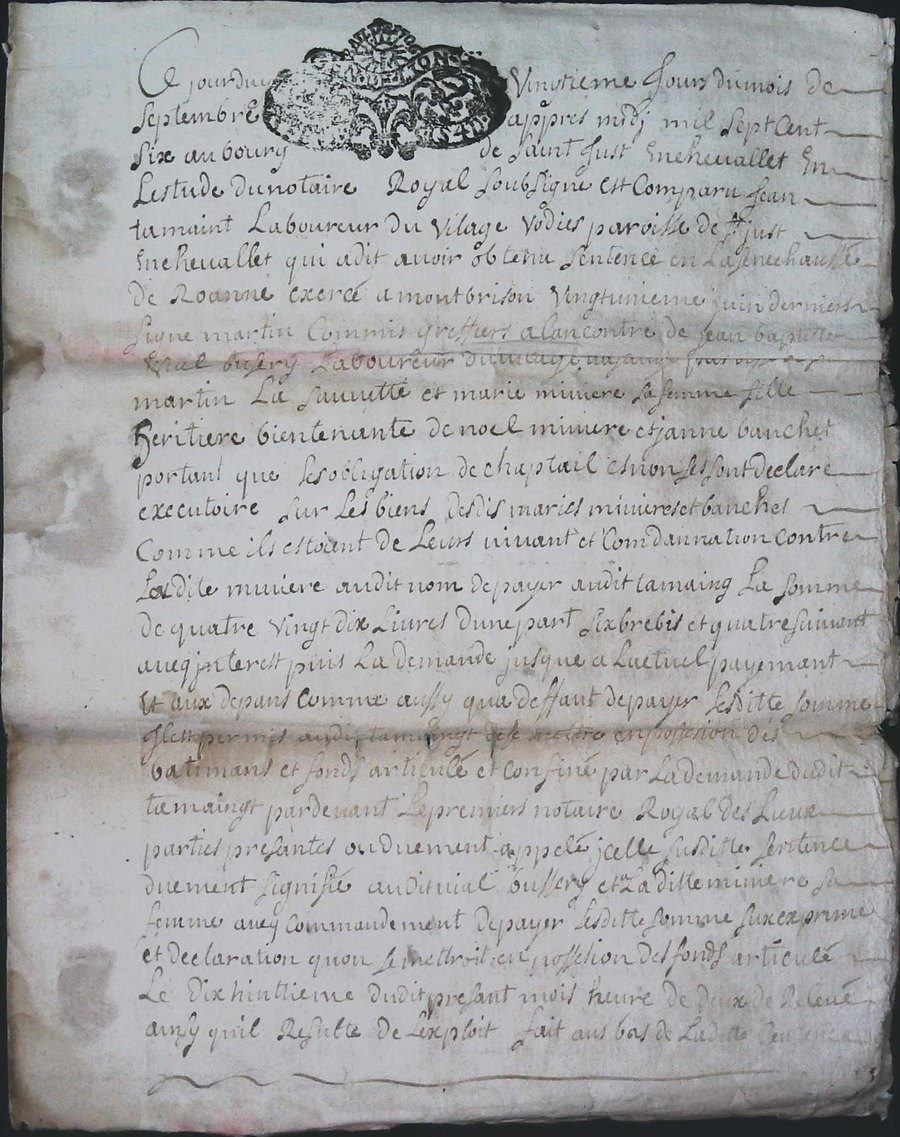 Ce jourduy Vingtieme Jours du mois de
Septembre appres midj mil Sept Cent
Six au bourg de Saint Just Enchevallet En
Lestude du notaire Royal soubsigne est Comparu Jean
tamaint Laboureur du Vilage Vodies paroisse de St just
Enchevallet qui a dit avoir obtenu sentence en La senechaussé
de Roanne exercé a montbrison Vingtunieme juin derniers
signe martin Commis greffiers alancontre de Jean baptiste
Vial busery Laboureur du vilage
martin La sauvette et marie miniere sa femme fille
heritiere bientenante de noel miniere et janne bauchet
portant que Les obligation de chaptail et non Les sont declare
executoire sur Les biens desdis maries minieres et bauchet
Comme ils estoient de Leurs vivant et Comdannation contre
Ladite miniere audit nom de payer audit tamaing La somme
de quatre Vingt dix Livres dune part six brebis et quatre suivant
aveq interest puis La demande jusque a Lactuel payemant
Et aux depans Comme aussy qua deffaut de payer Lesditte somme
Il est permis audit tamaingt de se mettre en possesion des
batimans et fonds articulé et Confiné par La demande dudit
tamaingt pardevant Le premiers notaire Royal des Lieux
parties presantes ou duement appelé jcelle susditte sentence
duement signifié audit vial bussery et La ditte miniere sa
femme aveq Commandement de payer Lesditte somme sus exprime
et declaration quon se mettroit en possetion des fonds articulé
Le dix huittieme dudit presant mois heure de deux de Relevé
ainsy quil Resulte de Lexploit fait aus bas de Laditte Sentence